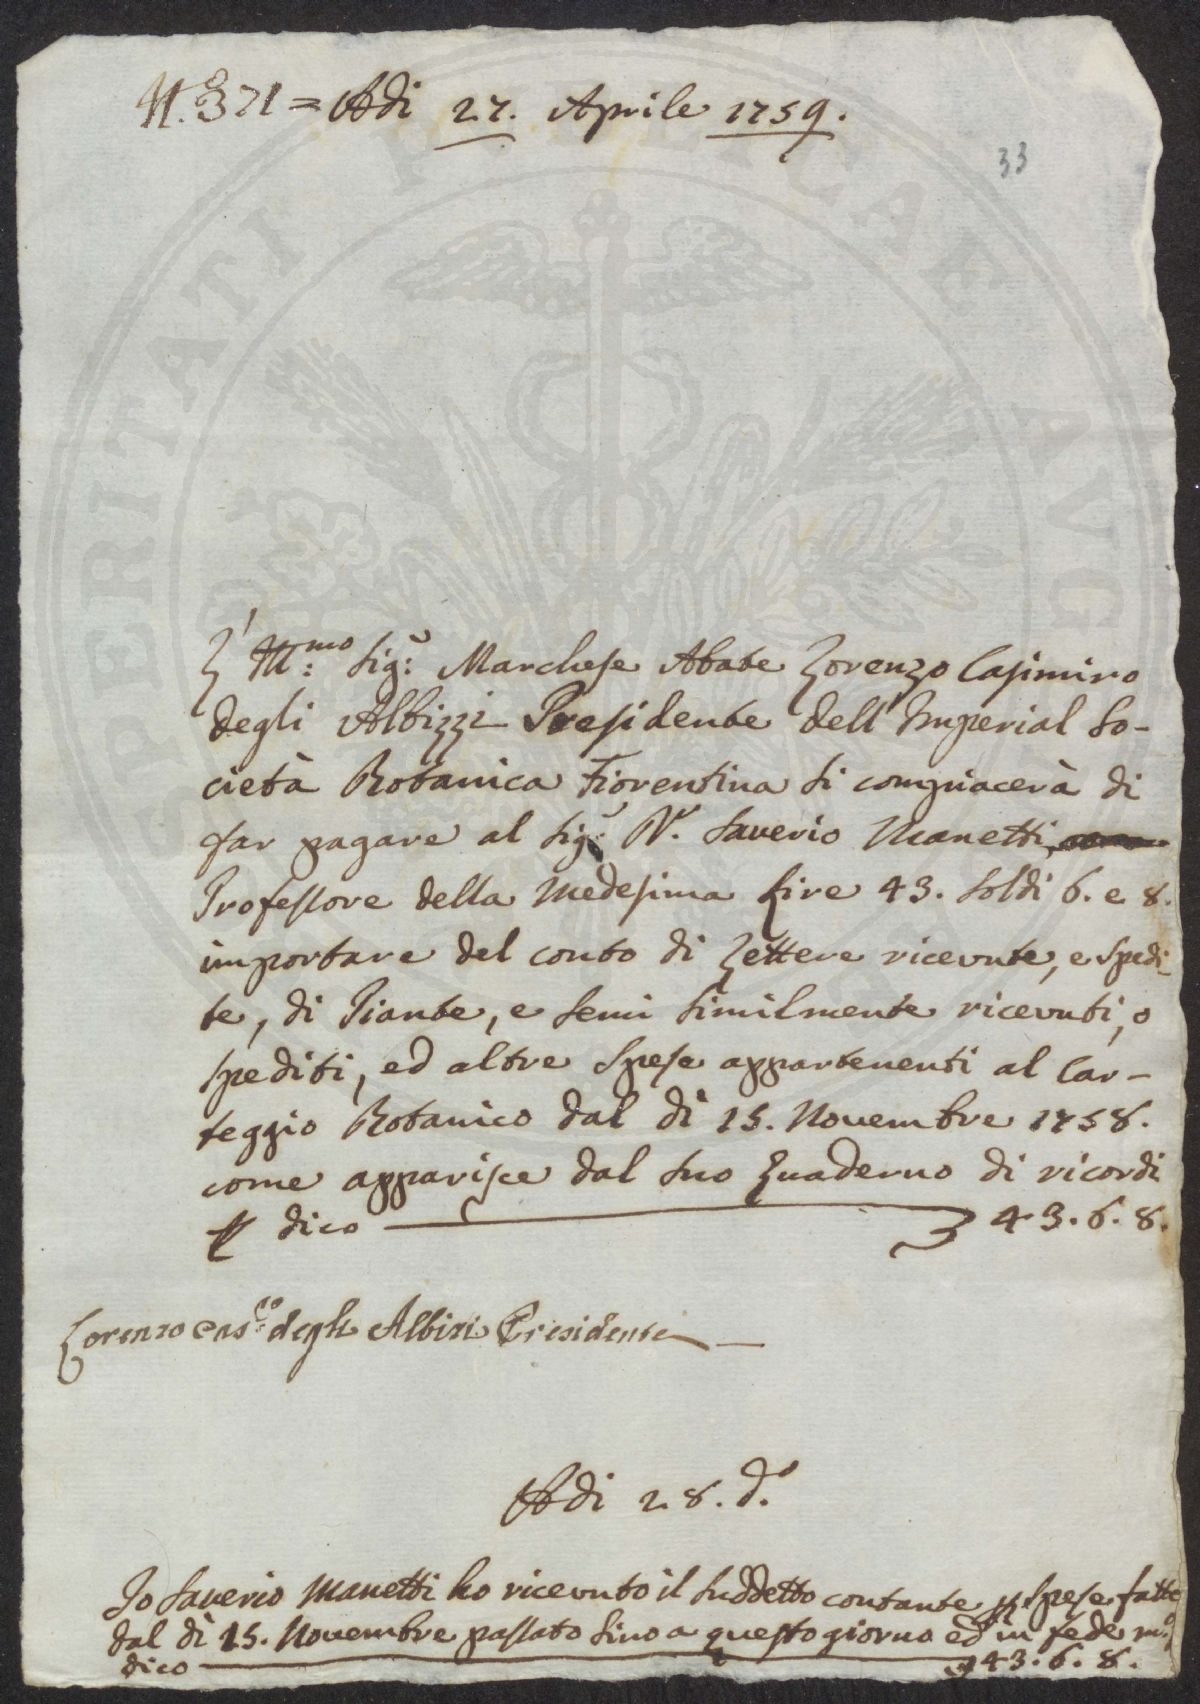 N.° 371 = Adi 27. Aprile 1759.
33
L'Ill.mo Sig.r Marchese Abate Lorenzo Casimiro
degli Albizzi Presidente dell'Imperial So-
cietà Botanica Fiorentina si compiacerà di
far pagare al Sig.r D.r Saverio Manetti
Professore della Medesima Lire 43. soldi 6. e 8.
importare del conto di Lettere ricevute, e spedi-
te, di Piante, e semi similmente ricevuti, o
spediti, ed altre spese appartenenti al Car-
teggio Botanico dal dì 15. Novembre 1758.
come apparisce dal suo Quaderno di ricordi
dico 43.6.8.
Lorenzo Cas.co degli Albizi Presidente
Adi 28. d.o
Io Saverio Manetti ho ricevuto il suddetto contante p spese fatte
dal dì 15. Novembre passato sino a questo giorno ed in fede m.o
dico 43.6.8.
PROSPERITATI PUBLICAE AVG